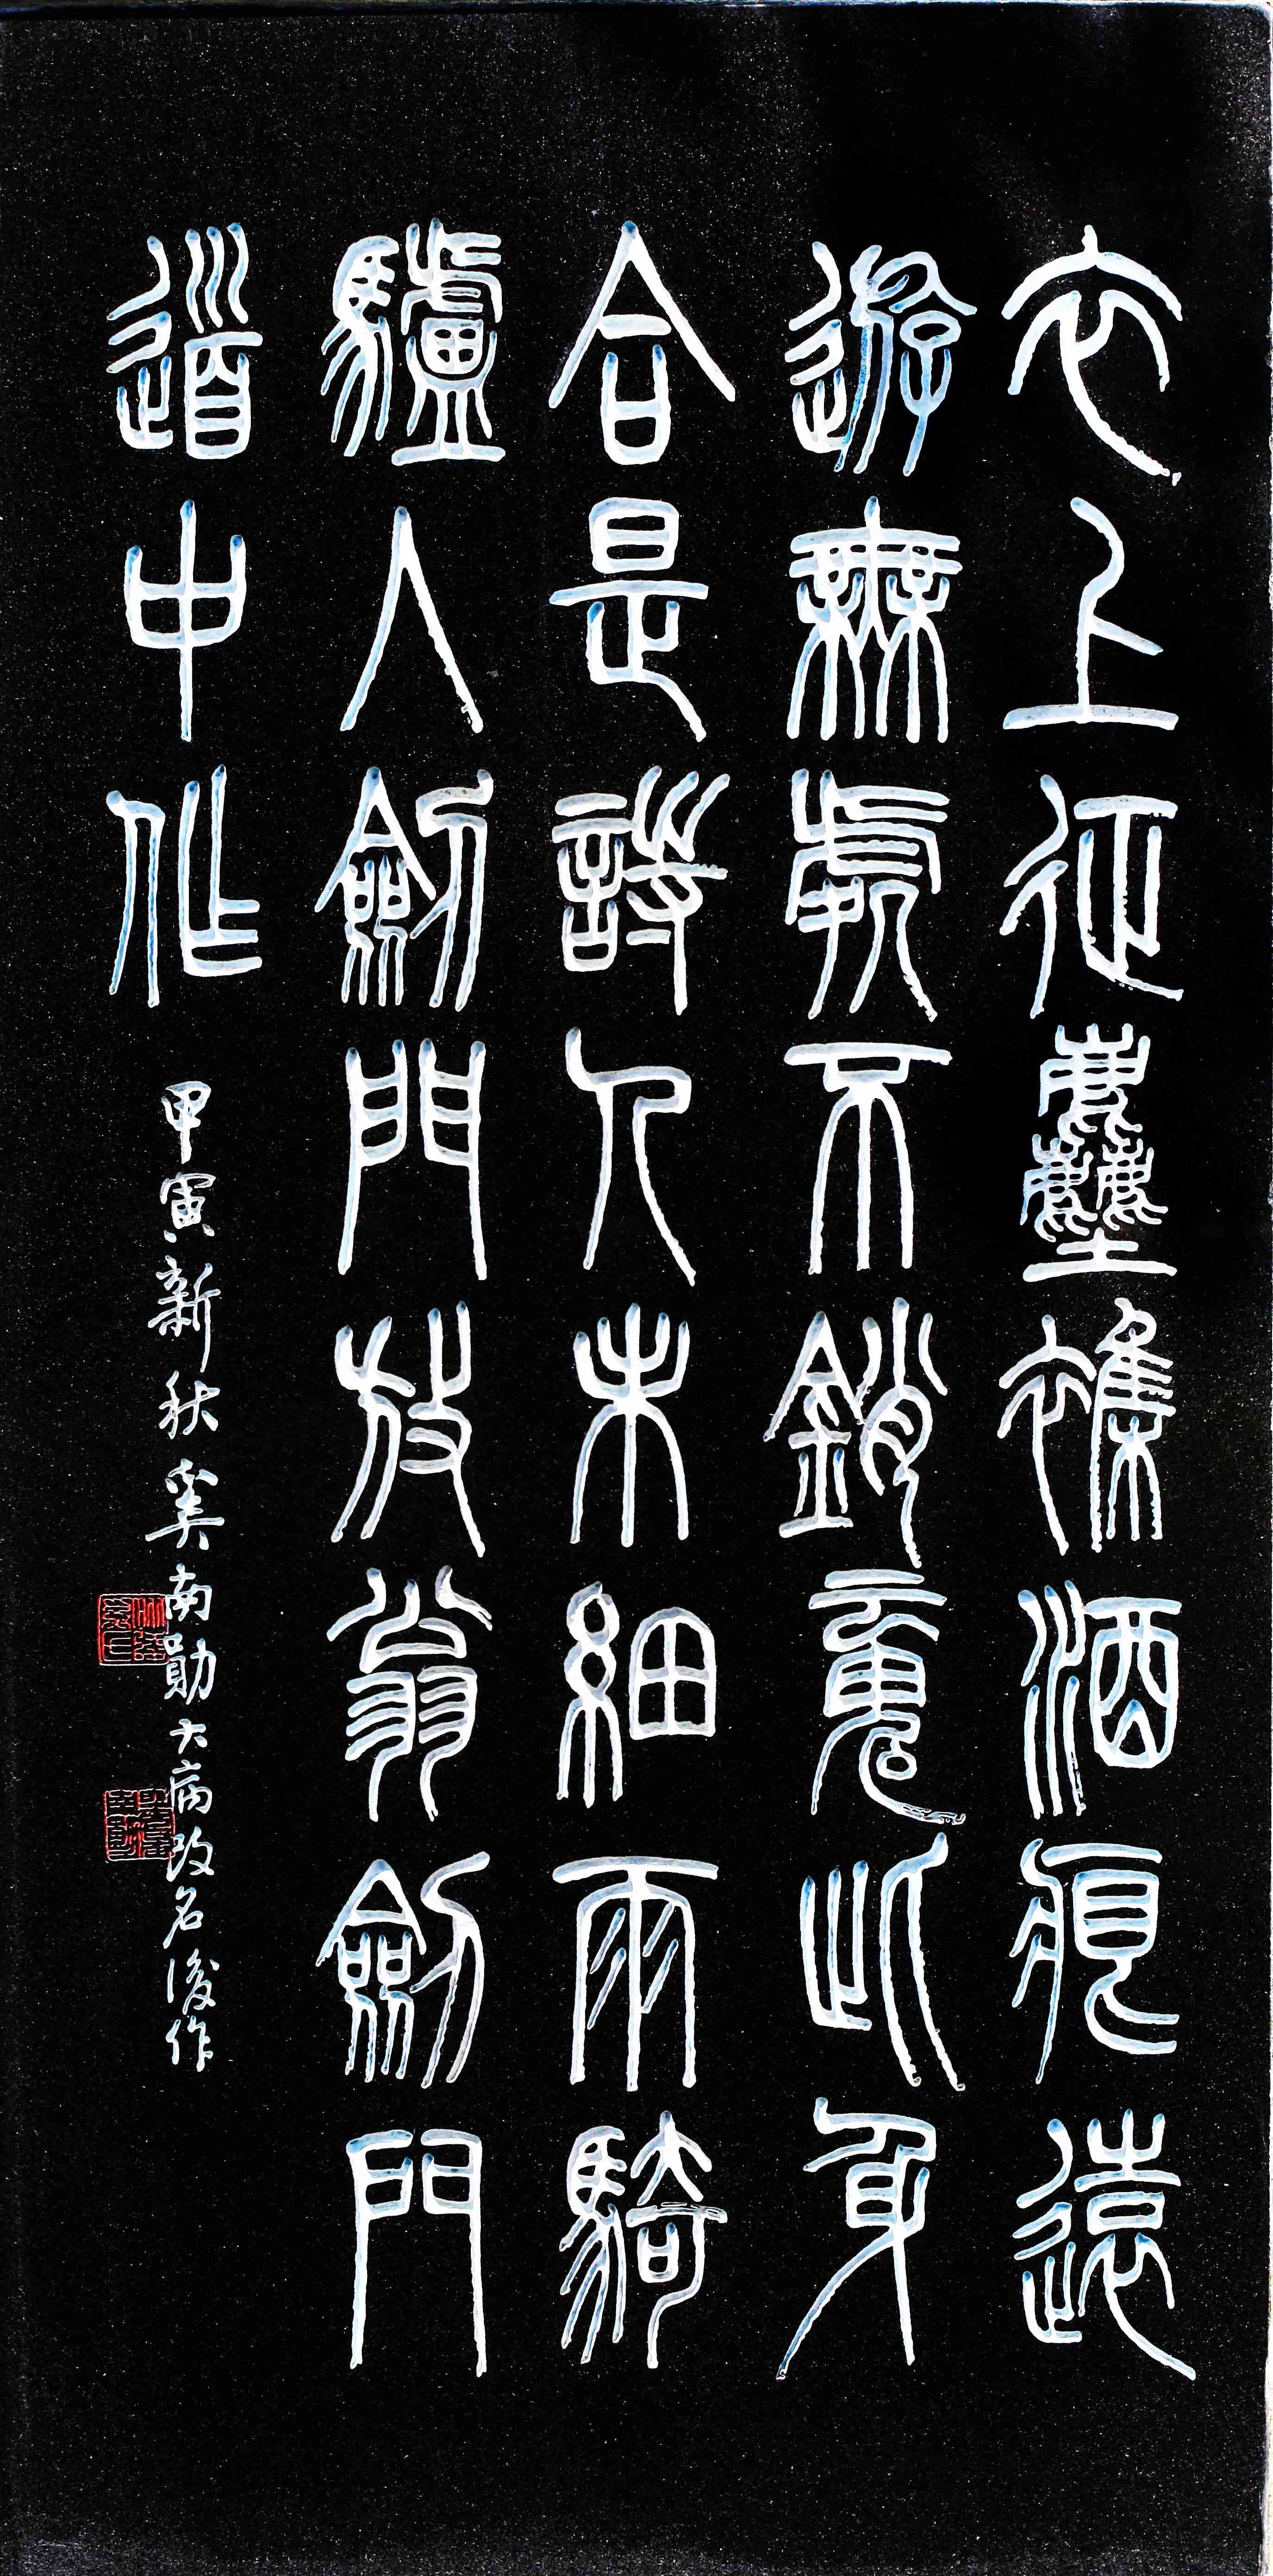 衣上征塵襍酒痕遠
遊無處不銷䰟此身
合是詩人未細雨騎
驢人劎門放翁劎門
道中作
甲寅新秋奚南勛大病改名後作